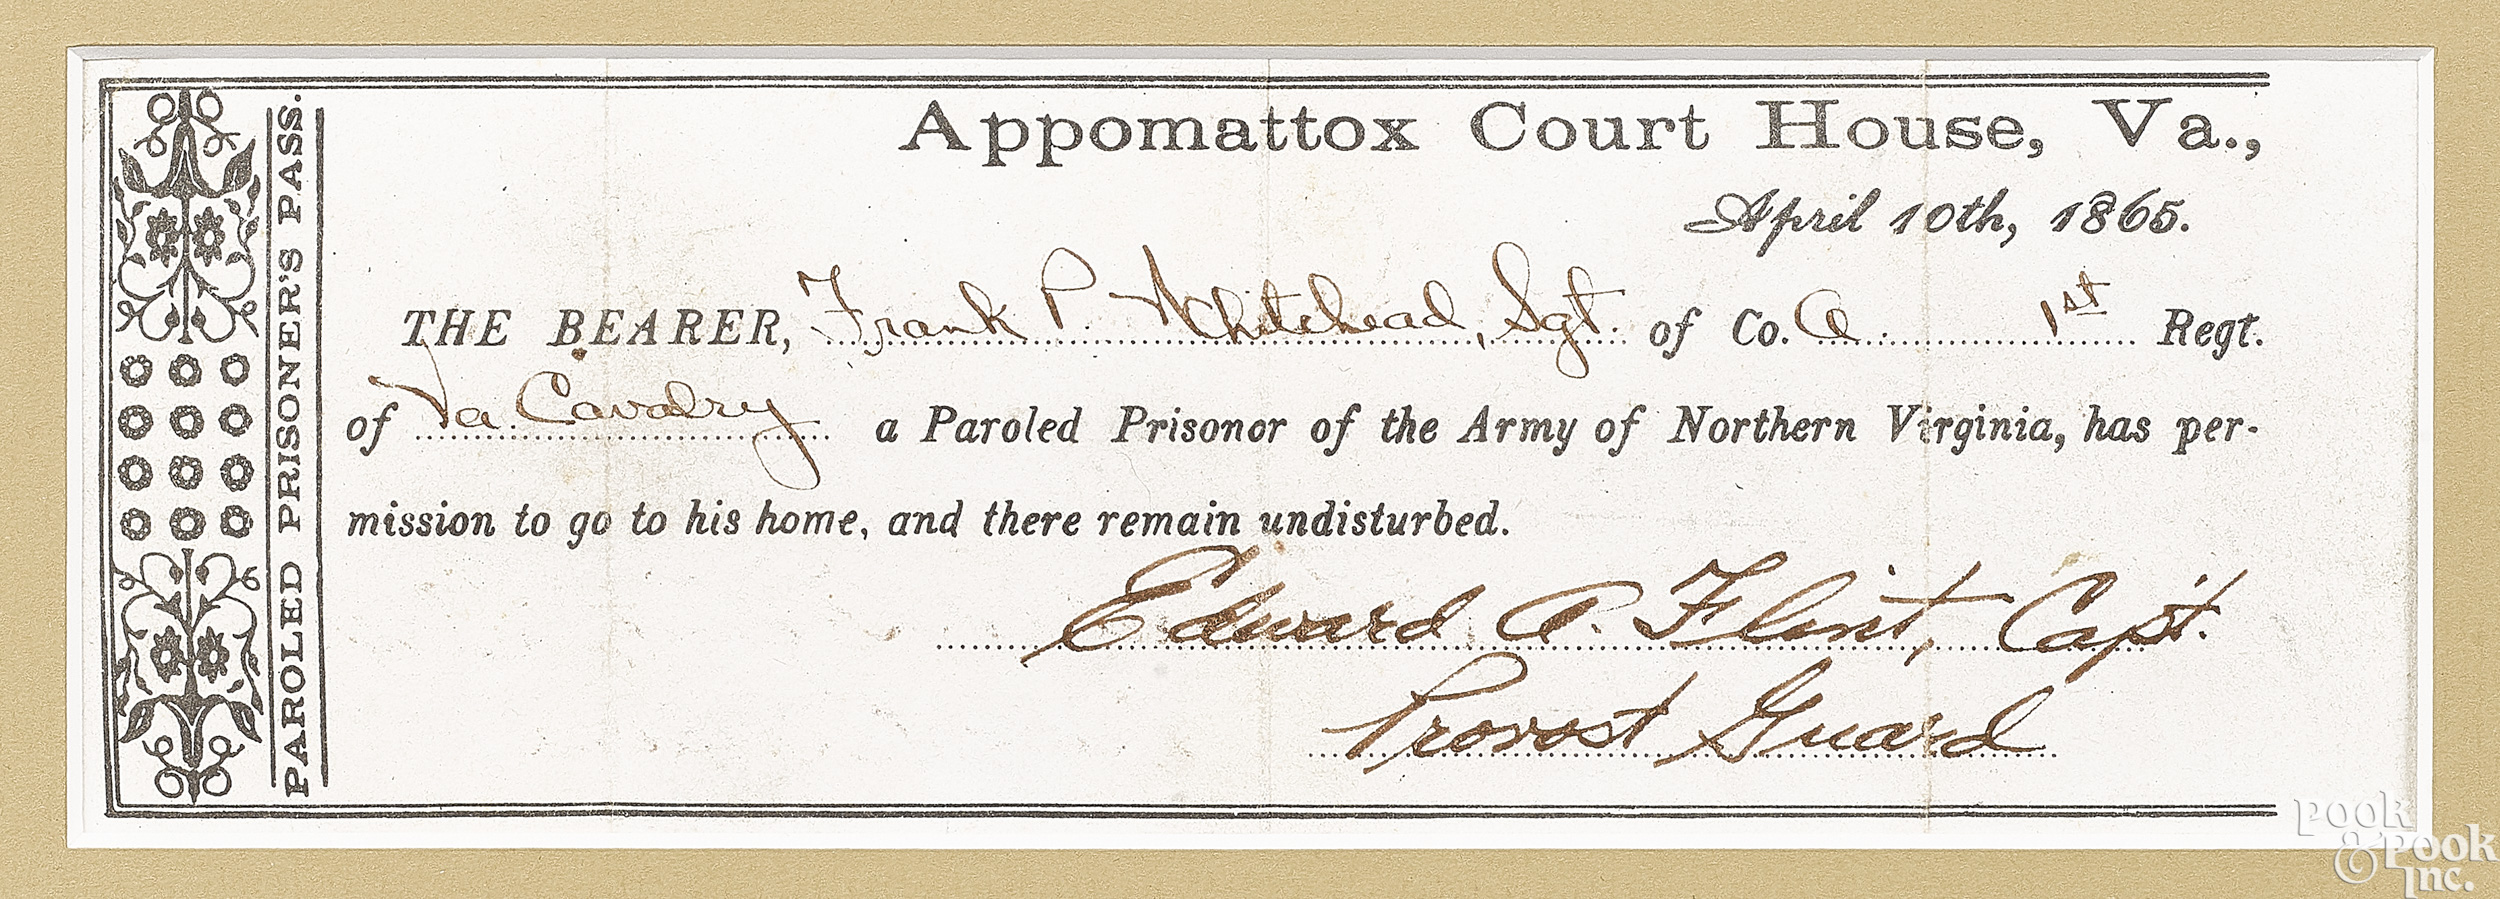 PAROLED PRISONER'S PASS.
Appomattox Court House, Va.,
April 10th, 1865.
THE BEARER, Frank P. Whitehead, Sgt. of Co. A 1st Regt.
of Va Cavalry a Paroled Prisonor of the Army of Northern Virginia, has per-
mission to go to his home, and there remain undisturbed.
Edward A. Flint, Capt.
Provost Guard
POOK
& POOK
Inc.